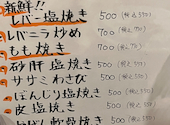 新鮮!!
レバー塩焼き 500(税込550)
レバニラ炒め 700(税込770)
もも焼き 700(税込770)
砂肝塩焼き 500(税込550)
ササミわさび 500(税込550)
ぼんじり塩焼き 500(税込550)
皮塩焼き 500(税込550)
軟骨焼き 500